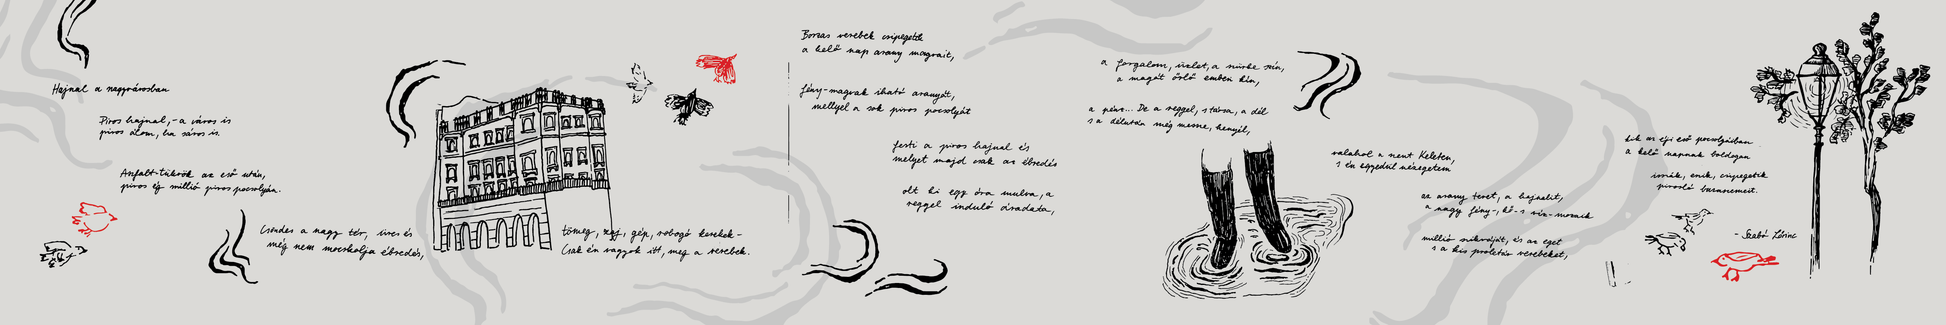 Hajnal a nagyvárosban
Piros hajnal, - a város is
piros álom, ha sáros is.
Aszfalt-tükrök az eső után,
piros ég millió piros pocsolyán.
Csendes a nagy tér, üres és
még nem mocskolja ébredés,
tömeg, zaj, gép, robogó kerekek -
Csak én vagyok itt, meg a verebek.
Borzas verebek csipegetik
a kelő nap arany magvait,
fény-magvak iható aranyát,
mellyel a sok piros pocsolyát
festi a piros hajnal és
melyet majd csak az ébredés
olt ki egy óra mulva, a
reggel induló áradata,
a forgalom, üzlet, a szürke szín,
a magát őrlő emberi kín,
a pénz... De a reggel, stássa, a dél
s a délután még messze, henyél,
valahol a szent Keleten,
s én egyedül nézegetem
az arany teret, a hajnalit,
a nagy fény-, kő- s víz-mozaik
millió szikráját, és az eget
s a kis proletár verebeket,
kik az éji eső pocsolyáiban
a kelő napnak boldogan
isszák, eszik, csipegetik
pirosló búzaszemeit.
- Szabó Lőrinc